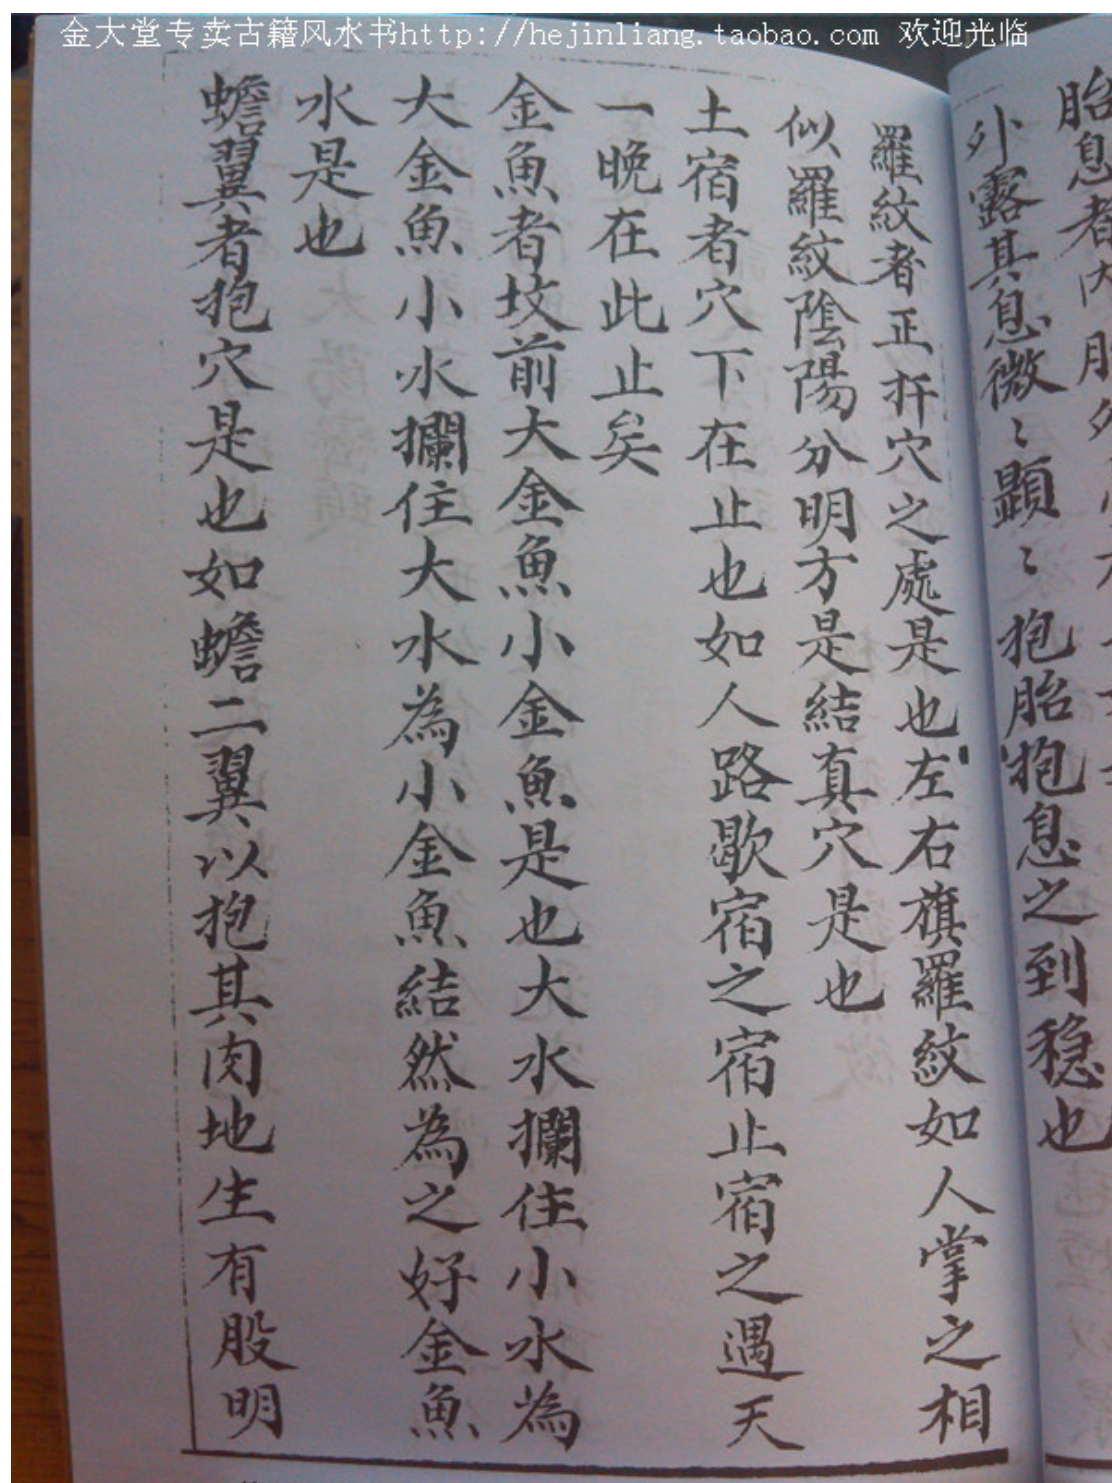 金大堂专卖古籍风水书http://hejinliang.taobao.com 欢迎光临
胎息者内胎外
外露其息微〻顯〻抱胎抱息之到穏也
羅紋者正扞穴之處是也左右旗羅紋如人掌之相
似羅紋陰陽分明方是結真穴是也
土宿者穴下在止也如人路歇宿之宿止宿之遇天
一晚在此止矣
金魚者坟前大金魚小金魚是也大水攔住小水為
大金魚小水攔住大水為小金魚結然為之好金魚
水是也
蟾翼者抱穴是也如蟾二翼以抱其肉地生有股明